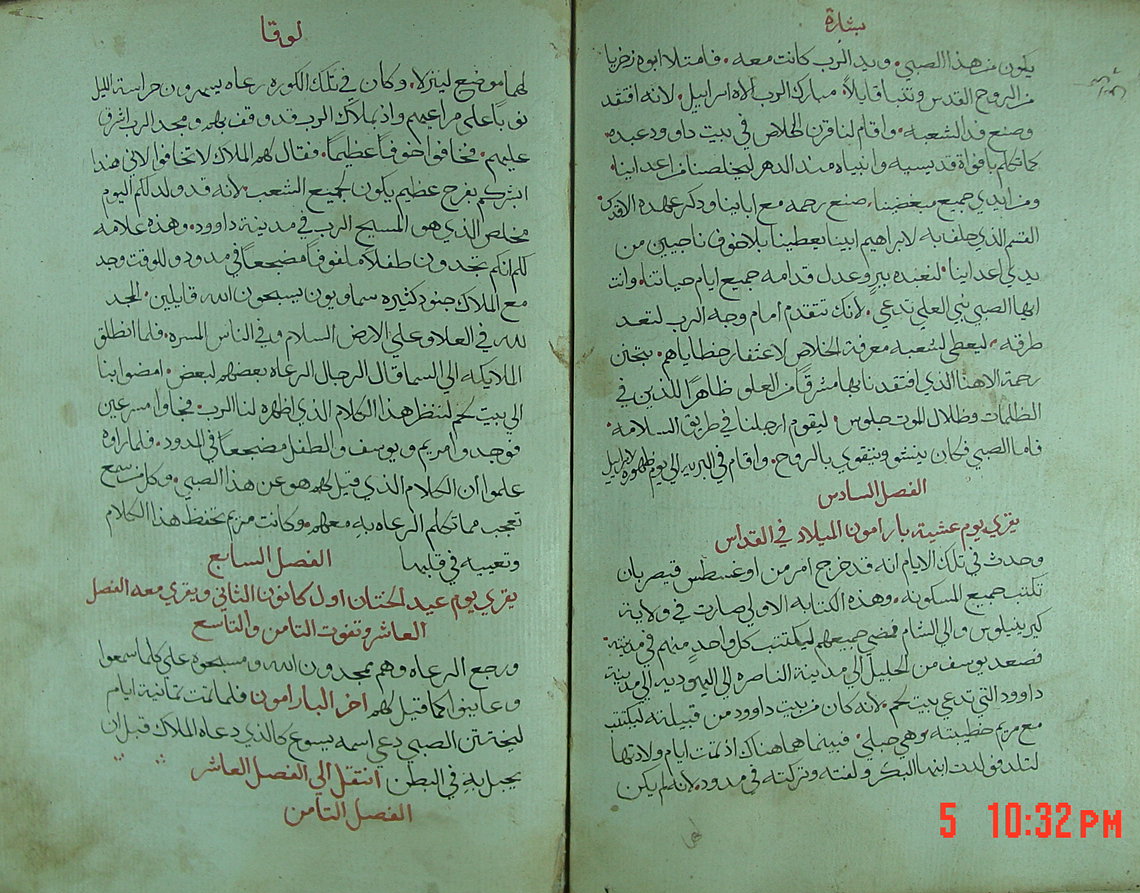 بشارة
يكون من هذا الصبي. ويد الرب كانت معه. فامتلا ابوه زخريا
من الروح القدس وتنبا قايلاً. مبارك الرب الاه اسراييل. لانه افتقد
وصنع فدا لشعبه. واقام لنا قرن الخلاص في بيت داوود عبده
كما تكلم بافواة قديسيه وانبياه منذ الدهر ليخلصنا من اعداينا.
ومن ايدي جميع مبغضينا. صنع رحمه مع اباينا وذكر عهده الاقدس
القسم الذي حلف به لابراهيم ابينا يعطينا بلا خوف ناجيين من
يدي اعداينا. لنعبده ببر وعدل قدامه جميع ايام حياتنا. وانت
ايها الصبي نبي العلي تدعي. لانك تتقدم امام وجه الرب لتعد
طرقه. ليعطي لشعبه معرفة الخلاص لاغتفار خطاياهم. بتحنن
رحمة الاهنا الذي افتقدنا بها مشرقاً من العلو. ظاهرًا للذين في
الظلمات وظلال الموت جلوس. ليقوم ارجلنا في طريق السلامه.
فاما الصبي فكان ينشو ويتقوي بالروح. واقام في البريه الي يوم ظهوره لاسراييل
الفصل السادس
يقري يوم عشية بارامون الميلاد في القداس
وحدث في تلك الايام انه قد خرج امر من اوغسطس قيصر بان
تكتب جميع المسكونه. وهذه الكتابه الاولي صارت في ولاية
كيرينيلوس والي الشام فمضي جميعهم ليكتتب كل واحدٍ منهم في مدينته
فصعد يوسف من الجليل الي مدينة الناصره الي اليهوديه الي مدينة
داوود التي تدعي بيت لحم. لانه كان من بيت داوود من قبيلته ليكتتب
مع مريم خطيبته وهي حبلي. فبينما هما هناك اذ تمت ايام ولادتها
لتلد فولدت ابنها البكر ولفته وتركته في مدود. لانه لم يكن
لوقا
لهما موضع لينزلا. وكان في تلك الكوره رعاه يسهرون حراسة الليل
نوباً علي مراعيهم واذ بملاك الرب قد وقف بهم ومجد الرب اشرق
عليهم. فخافوا خوفاً عظيماً. فقال لهم الملاك لا تخافوا لاني هنذا
ابشركم بفرح عظيم يكون لجميع الشعب. لانه قد ولد لكم اليوم
مخلص الذي هو المسيح الرب في مدينة داوود. وهذه علامه
لكم انكم تجدون طفلاً ملفوفاً مضجعاً في مدود وللوقت وجد
مع الملاك جنود كثيره سماويون يسبحون الله قايلين. المجد
لله في العلا وعلي الارض السلام وفي الناس المسره. فلما انطلق
الملايكه الي السما قال الرجال الرعاه بعضهم لبعض. امضوا بنا
الي بيت لحم لننظر هذا الكلام الذي اظهره لنا الرب. فجاوا مسرعين
فوجدوا مريم ويوسف والطفل مضجعاً في المدود. فلما راوه
علموا ان الكلام الذي قيل لهم هو عن هذا الصبي. وكل من سمع
تعجب مما تكلم الرعاه به معهم. وكانت مريم تحفظ هذا الكلام
وتعييه في قلبها الفصل السابع
يقري يوم عيد الختان اول كانون الثاني ويقري معه الفصل
العاشر وتفوت الثامن والتاسع
ورجع الرعاه وهم يمجدون الله ومسبحوه علي كلما سمعوا
وعاينوا كما قيل لهم اخر البارامون فلما تمت ثمانية ايام
ليختتن الصبي دعي اسمه يسوع كالذي دعاه الملاك قبل ان
يحبل به في البطن انتقل الي الفصل العاشر
الفصل الثامن
5 10:32 PM